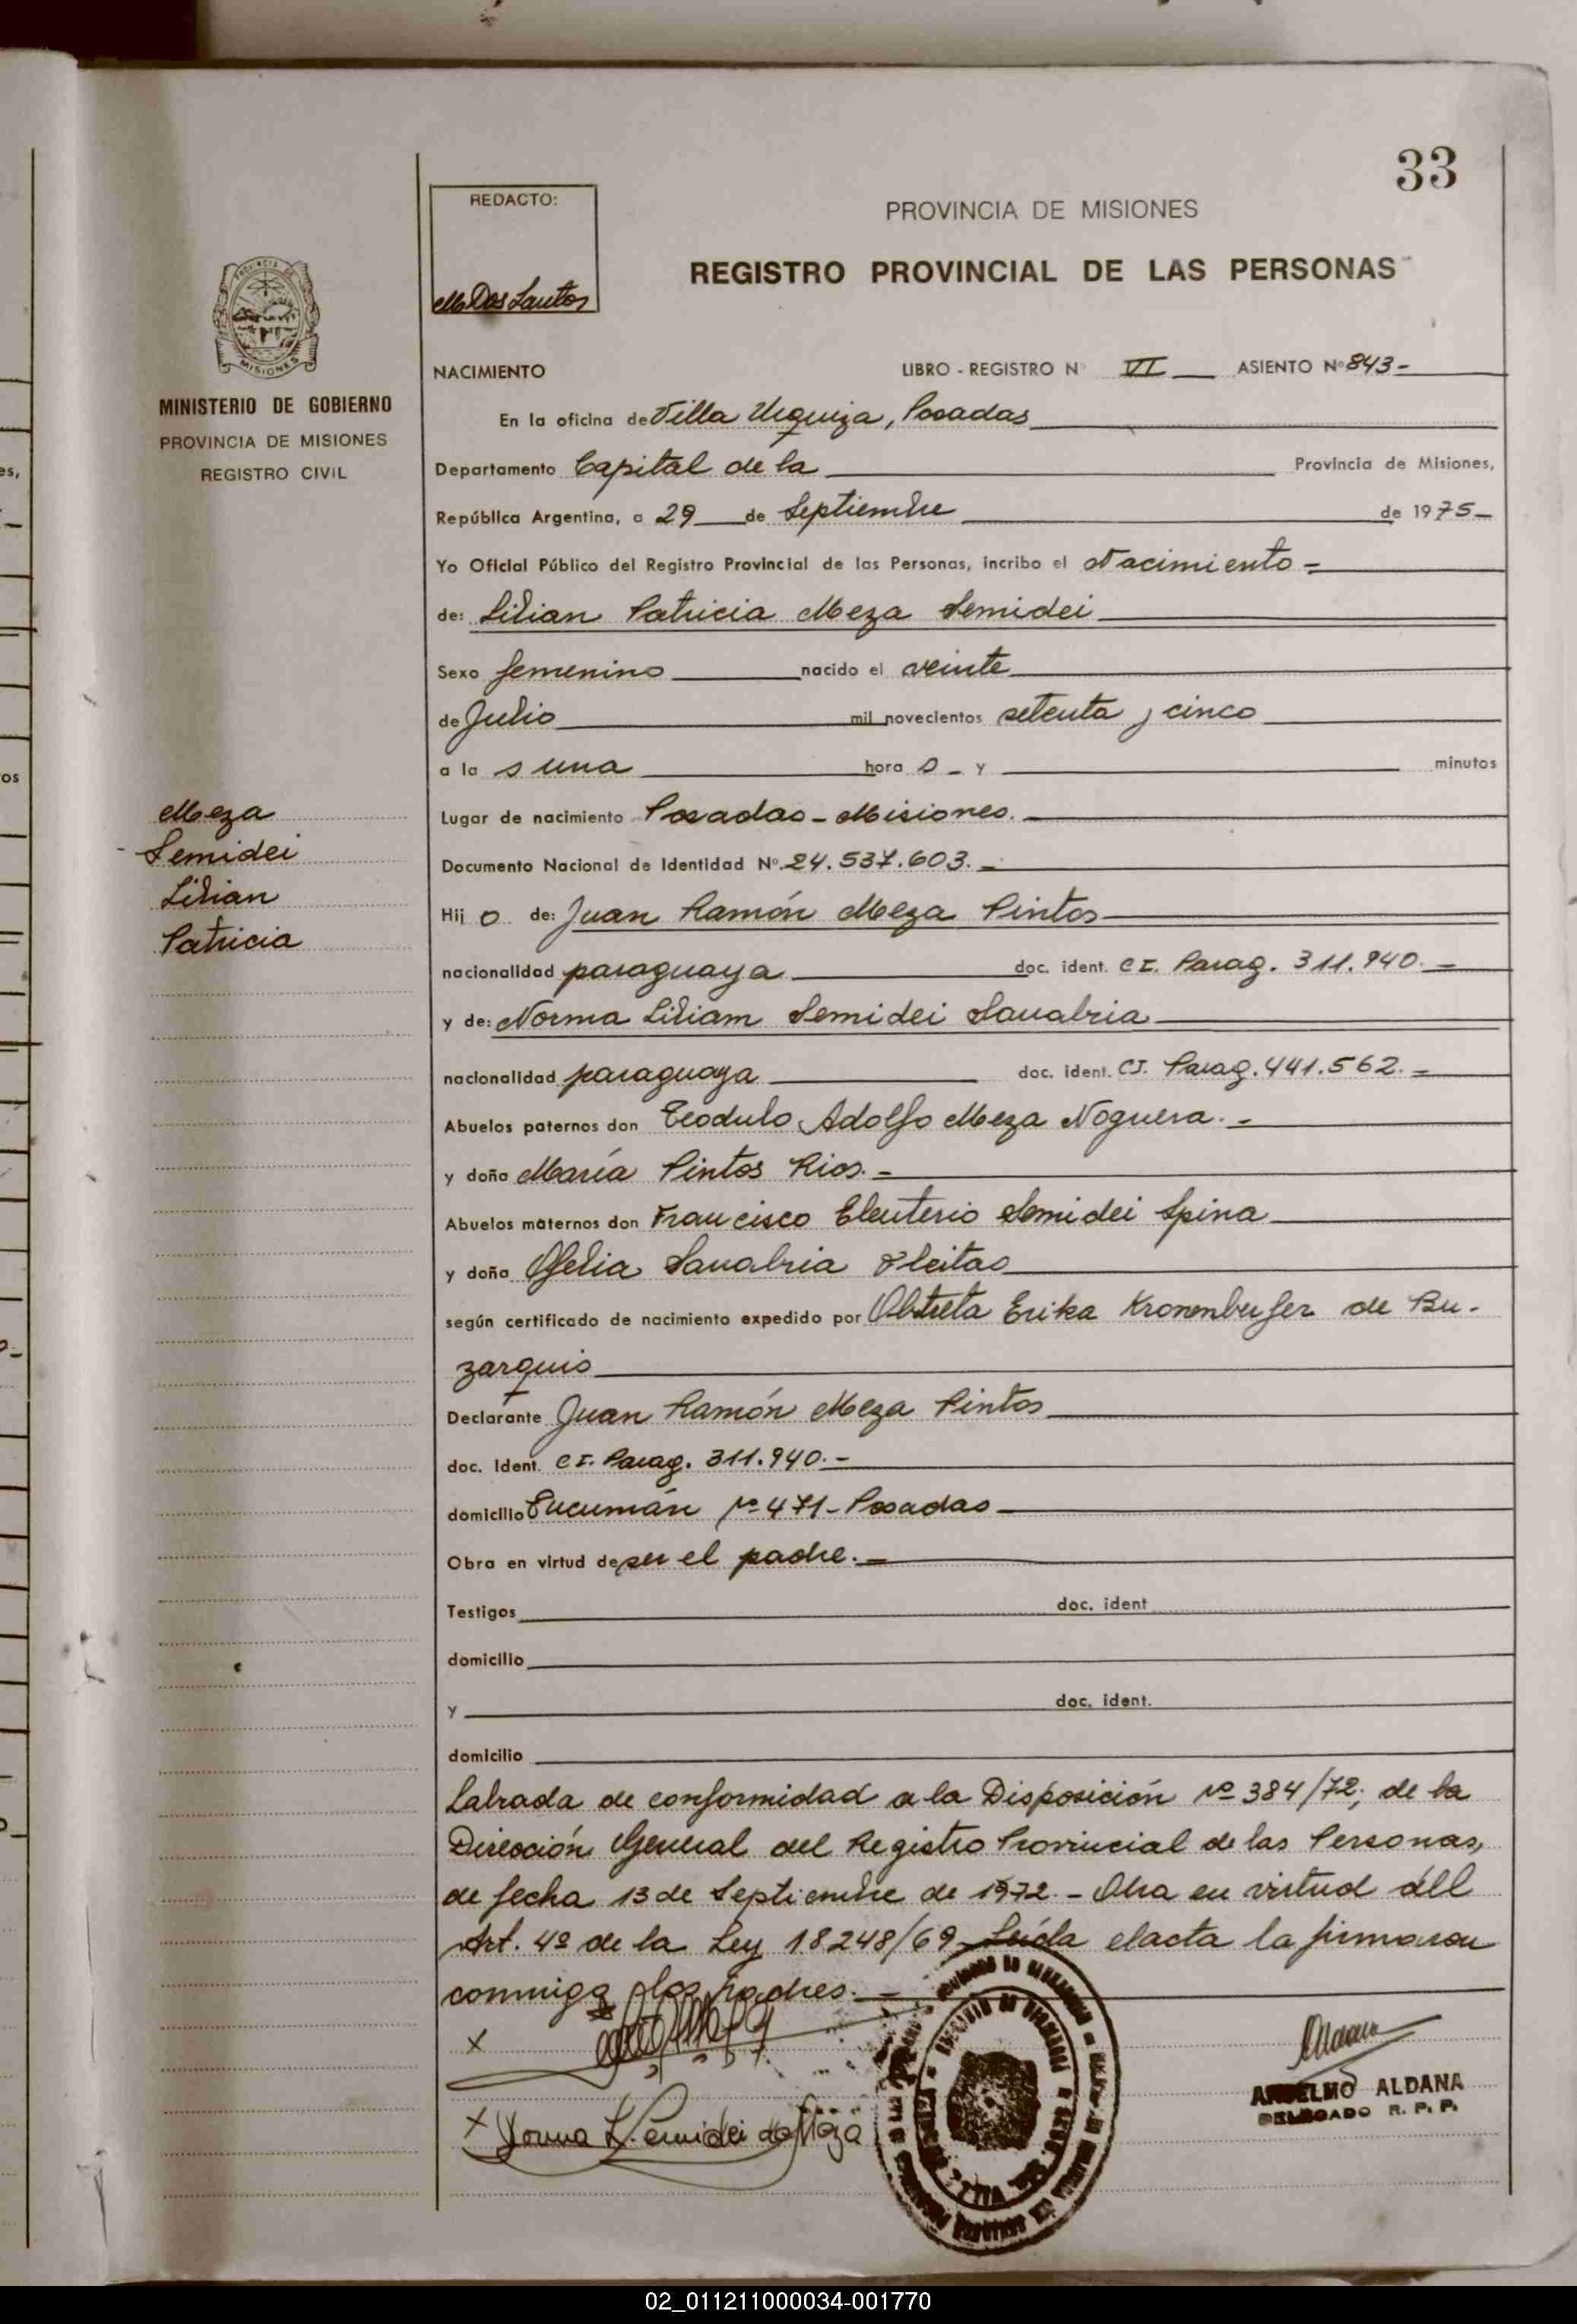 33
REDACTO:
M Dos Santos
PROVINCIA DE MISIONES
REGISTRO PROVINCIAL DE LAS PERSONAS
MISIONES
MINISTERIO DE GOBIERNO
PROVINCIA DE MISIONES
REGISTRO CIVIL
Meza
Semidei
Lilian
Patricia
NACIMIENTO LIBRO - REGISTRO Nº VI ASIENTO Nº 843-
En la oficina de Villa Urquiza, Posadas
Departamento Capital de la Provincia de Misiones,
República Argentina, a 29 de Septiembre de 1975-
Yo Oficial Público del Registro Provincial de las Personas, incribo el Nacimiento =
de: Lilian Patricia Meza Semidei
Sexo femenino nacido el veinte
de Julio mil novecientos setenta y cinco
a la s una hora s - y minutos
Lugar de nacimiento Posadas - Misiones.
Documento Nacional de Identidad Nº. 24.537.603. -
Hij o de: Juan Ramón Meza Pintos
nacionalidad paraguaya doc. ident. CI. Parag. 311.940. -
y de: Norma Liliam Semidei Sanabria
nacionalidad paraguaya doc. ident. CI. Parag. 441.562. =
Abuelos paternos don Teodulo Adolfo Meza Noguera. -
y doña María Pintos Rios. =
Abuelos maternos don Francisco Eleuterio Semidei Spina
y doña Ofelia Sanabria Fleitas
según certificado de nacimiento expedido por Obtreta Erika Kronenberger de Bu-
zarquis
Declarante Juan Ramón Meza Pintos
doc. Ident. CI. Parag. 311.940. -
domicilio Tucumán Nº 471 - Posadas
Obra en virtud de ser el padre. -
Testigos doc. ident
domicilio
y doc. ident.
domicilio
Labrada de conformidad a la Disposición Nº 384/72; de la
Dirección General del Registro Provincial de las Personas,
de fecha 13 de Septiembre de 1972. - Obra en virtud del
Art. 4º de la Ley 18248/69 - Leída el acta la firmaron
conmigo los padres. -
X
X Norma L. Semidei de Meza
ANSELMO ALDANA
DELEGADO R. P. P.
02_011211000034-001770